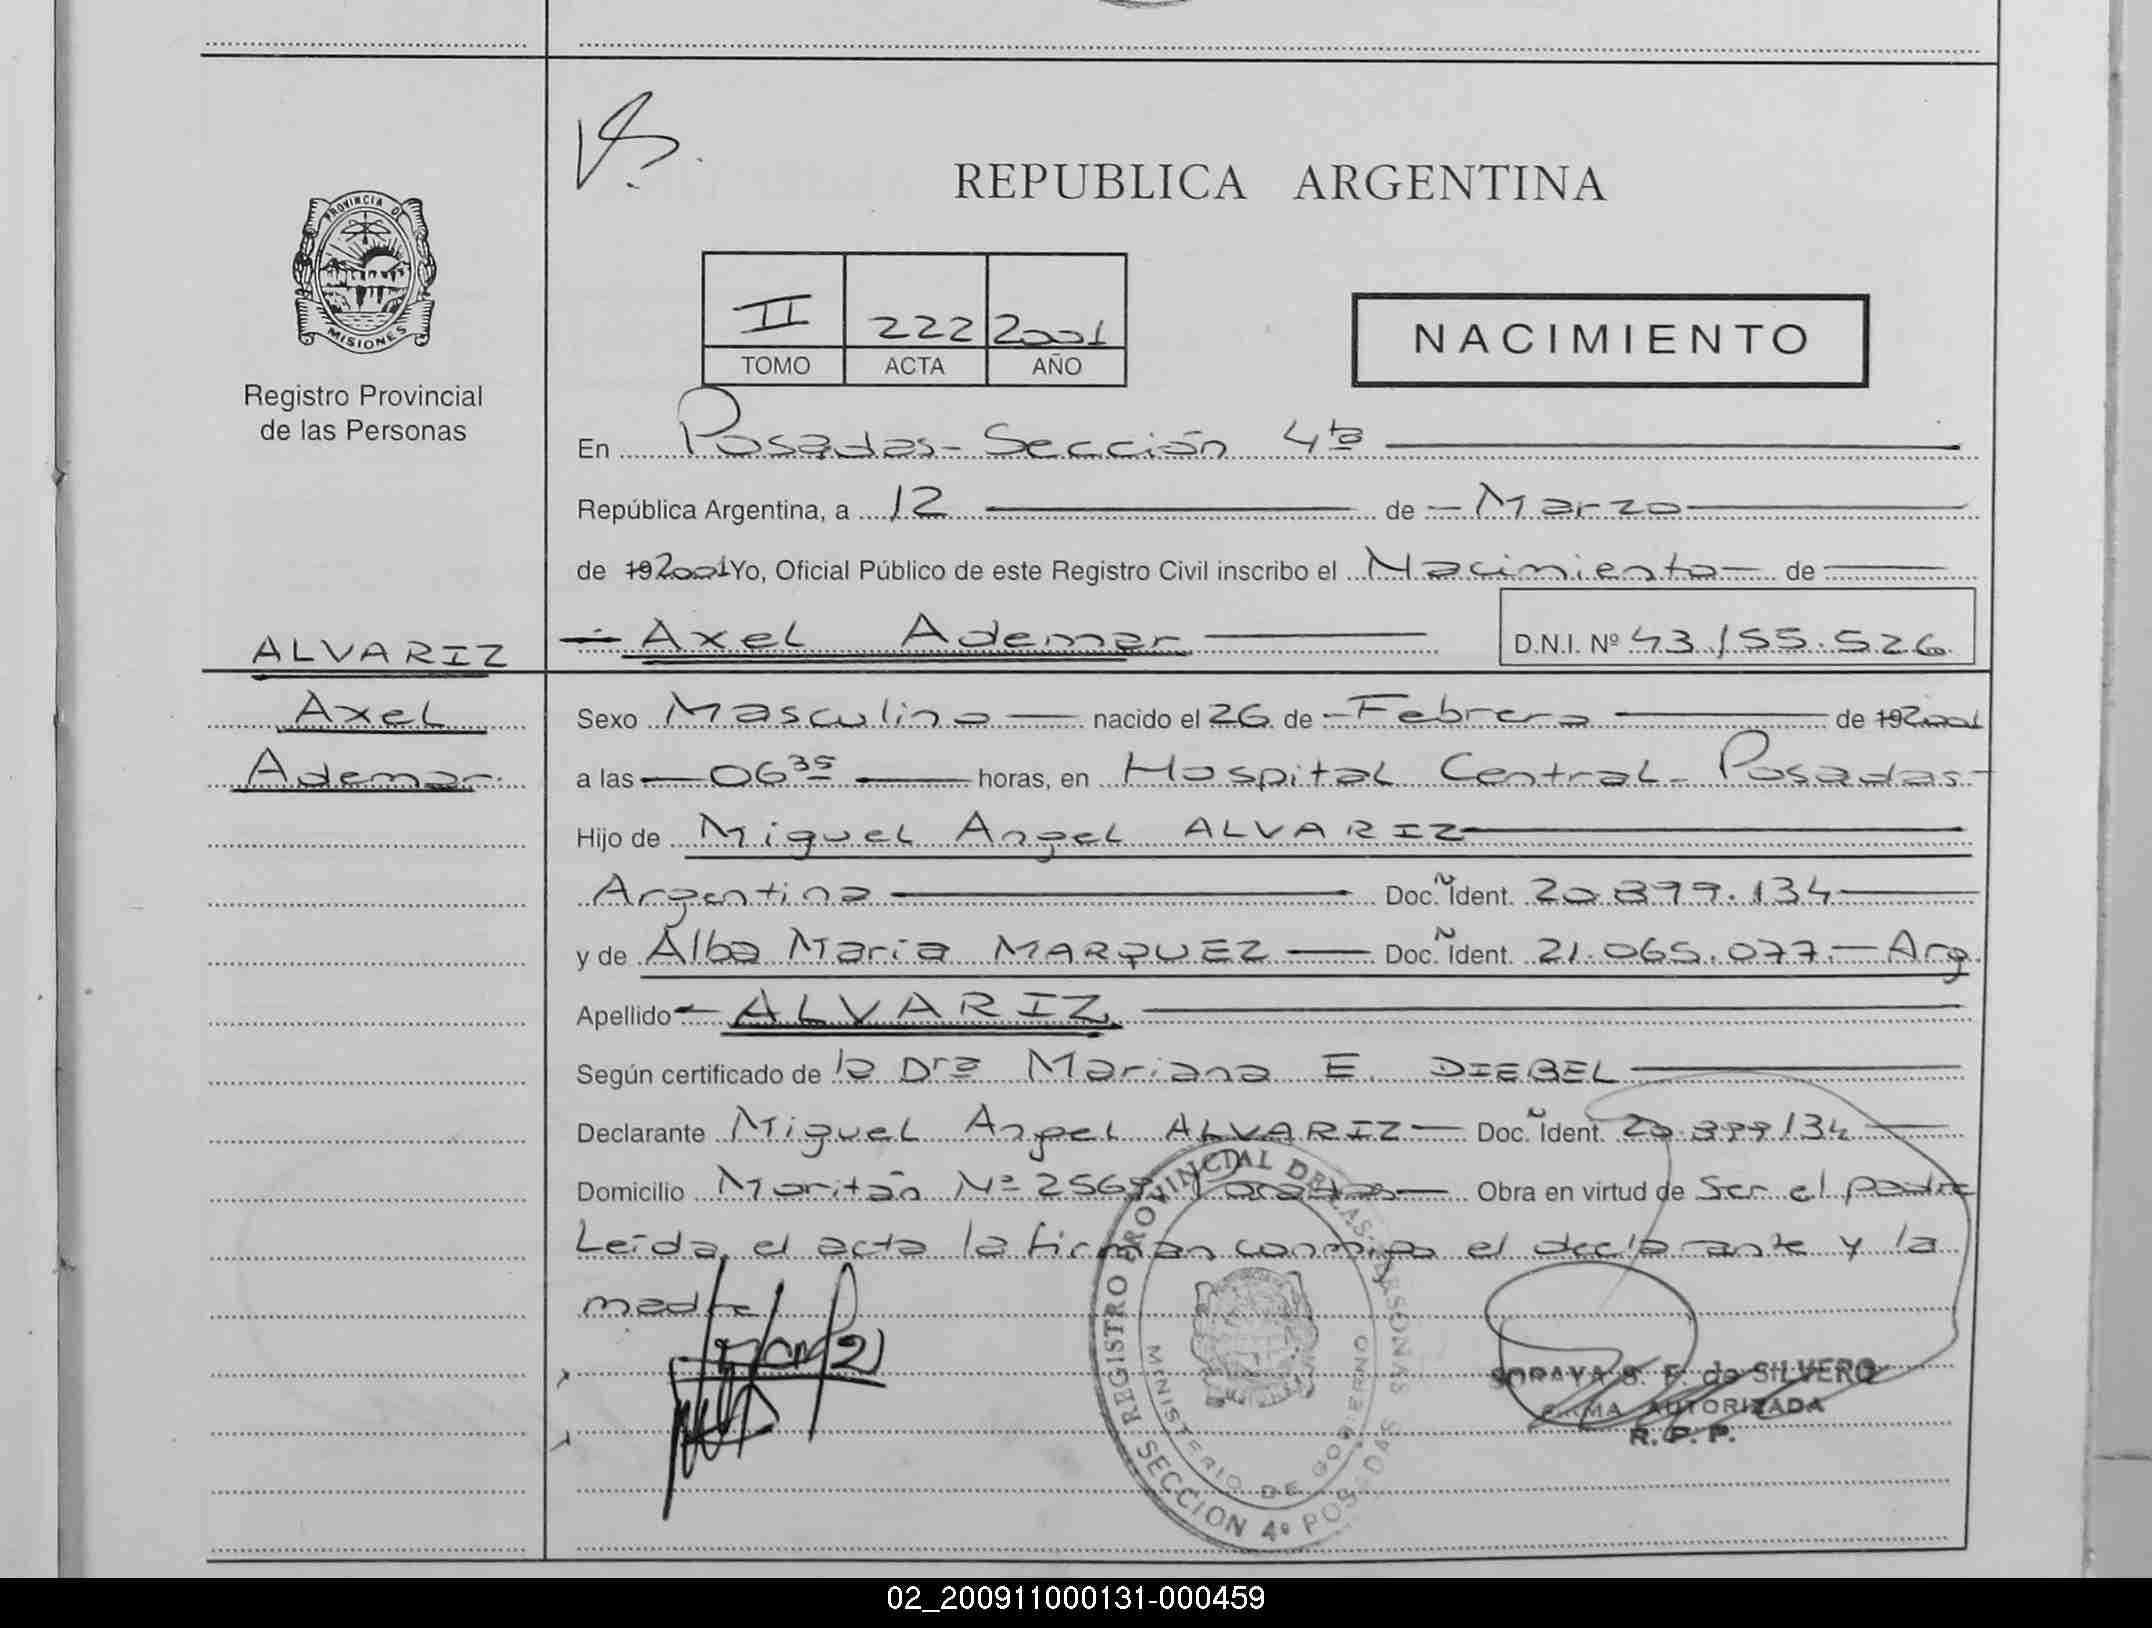 REPUBLICA ARGENTINA
PROVINCIA DE
MISIONES
Registro Provincial
de las Personas
II 222 2001
TOMO ACTA AÑO
NACIMIENTO
En Posadas - Sección 4ta
República Argentina, a 12 de - Marzo
de 192001 Yo, Oficial Público de este Registro Civil inscribo el Nacimiento - de
ALVARIZ
Axel
Ademar
Axel Ademar D.N.I. Nº 43.155.526
Sexo Masculino nacido el 26 de - Febrero de 192001
a las 06 35 horas, en Hospital Central - Posadas -
Hijo de Miguel Angel ALVARIZ
Argentina Doc. Ñ Ident. 20.899.134
y de Alba Maria MARQUEZ Doc. Ñ Ident. 21.065.077. - Arg.
Apellido - ALVARIZ
Según certificado de la Dra Mariana E. DIEBEL
Declarante Miguel Angel ALVARIZ - Doc. Ñ Ident. 20.899.134
Domicilio Nº Posadas Obra en virtud de Ser el padre
Leída el acta la firman conmigo el declarante y la
madre
REGISTRO PROVINCIAL DE LAS PERSONAS
MINISTERIO DE GOBIERNO
SECCION 4º POSADAS
SORAYA S. F. de SILVERO
FIRMA AUTORIZADA
R. P. P.
02_200911000131-000459